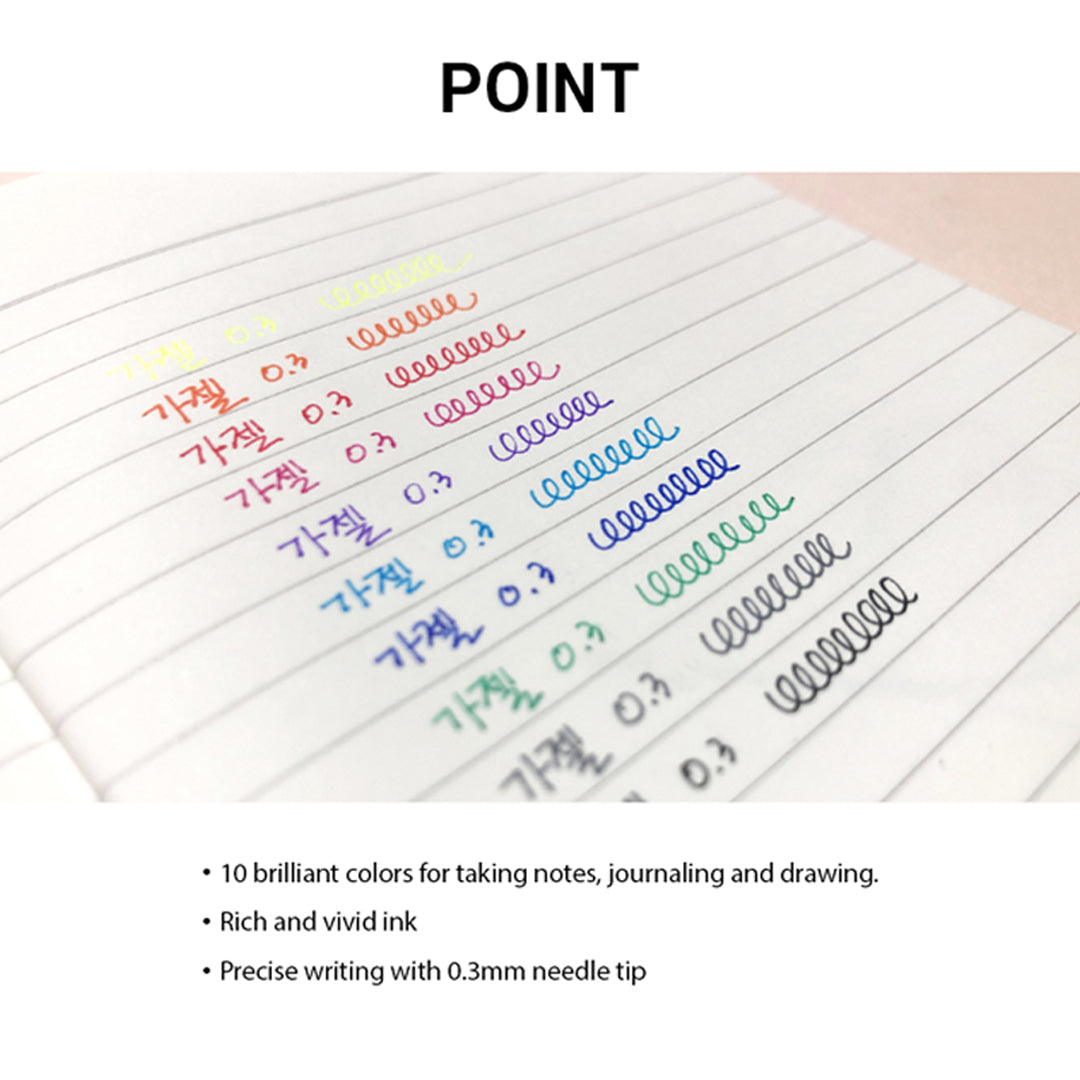 POINT
가젤 0.3
가젤 0.3
가젤 0.3
가젤 0.3
가젤 0.3
가젤 0.3
가젤 0.3
가젤 0.3
가젤 0.3
0.3
• 10 brilliant colors for taking notes, journaling and drawing.
• Rich and vivid ink
• Precise writing with 0.3mm needle tip